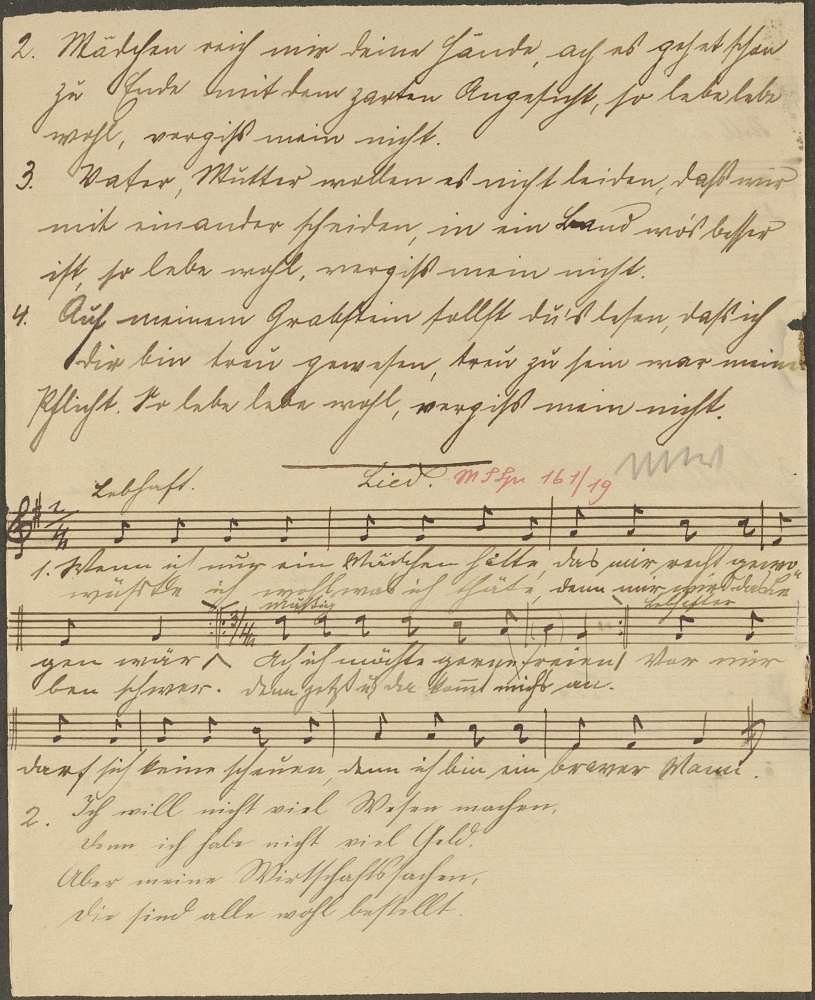 2. Mädchen reich mir deine Hände, ach es gehet schon
zu Ende mit dem zarten Angesicht, so lebe lebe
wohl, vergiß mein nicht.
3. Vater, Mutter wollen es nicht leiden, daß wir
mit einander scheiden, in ein Land wo's besser
ist, so lebe wohl, vergiß mein nicht.
4. Auf meinem Grabstein sollst du's lesen, daß ich
dir bin treu gewesen, treu zu sein war meine
Pflicht. So lebe lebe wohl, vergiß mein nicht.
Lebhaft. Lied. 161/19
2/4
1. Wenn ich nur ein Mädchen hätte, das mir recht gewo„
wüßte ich wohl, was ich thäte, denn mir wird das Le„
3/4 Mäßig Lebhafter
gen wär Ach ich möchte gerne freien! Vor mir
ben schwer. denn jetzt ist der kommt mich's an.
darf sich keine scheuen, denn ich bin ein braver Mann.
2. Ich will nicht viel Wesen machen,
denn ich habe nicht viel Geld.
Aber meine Wirtschaftssachen,
die sind alle wohl bestellt.